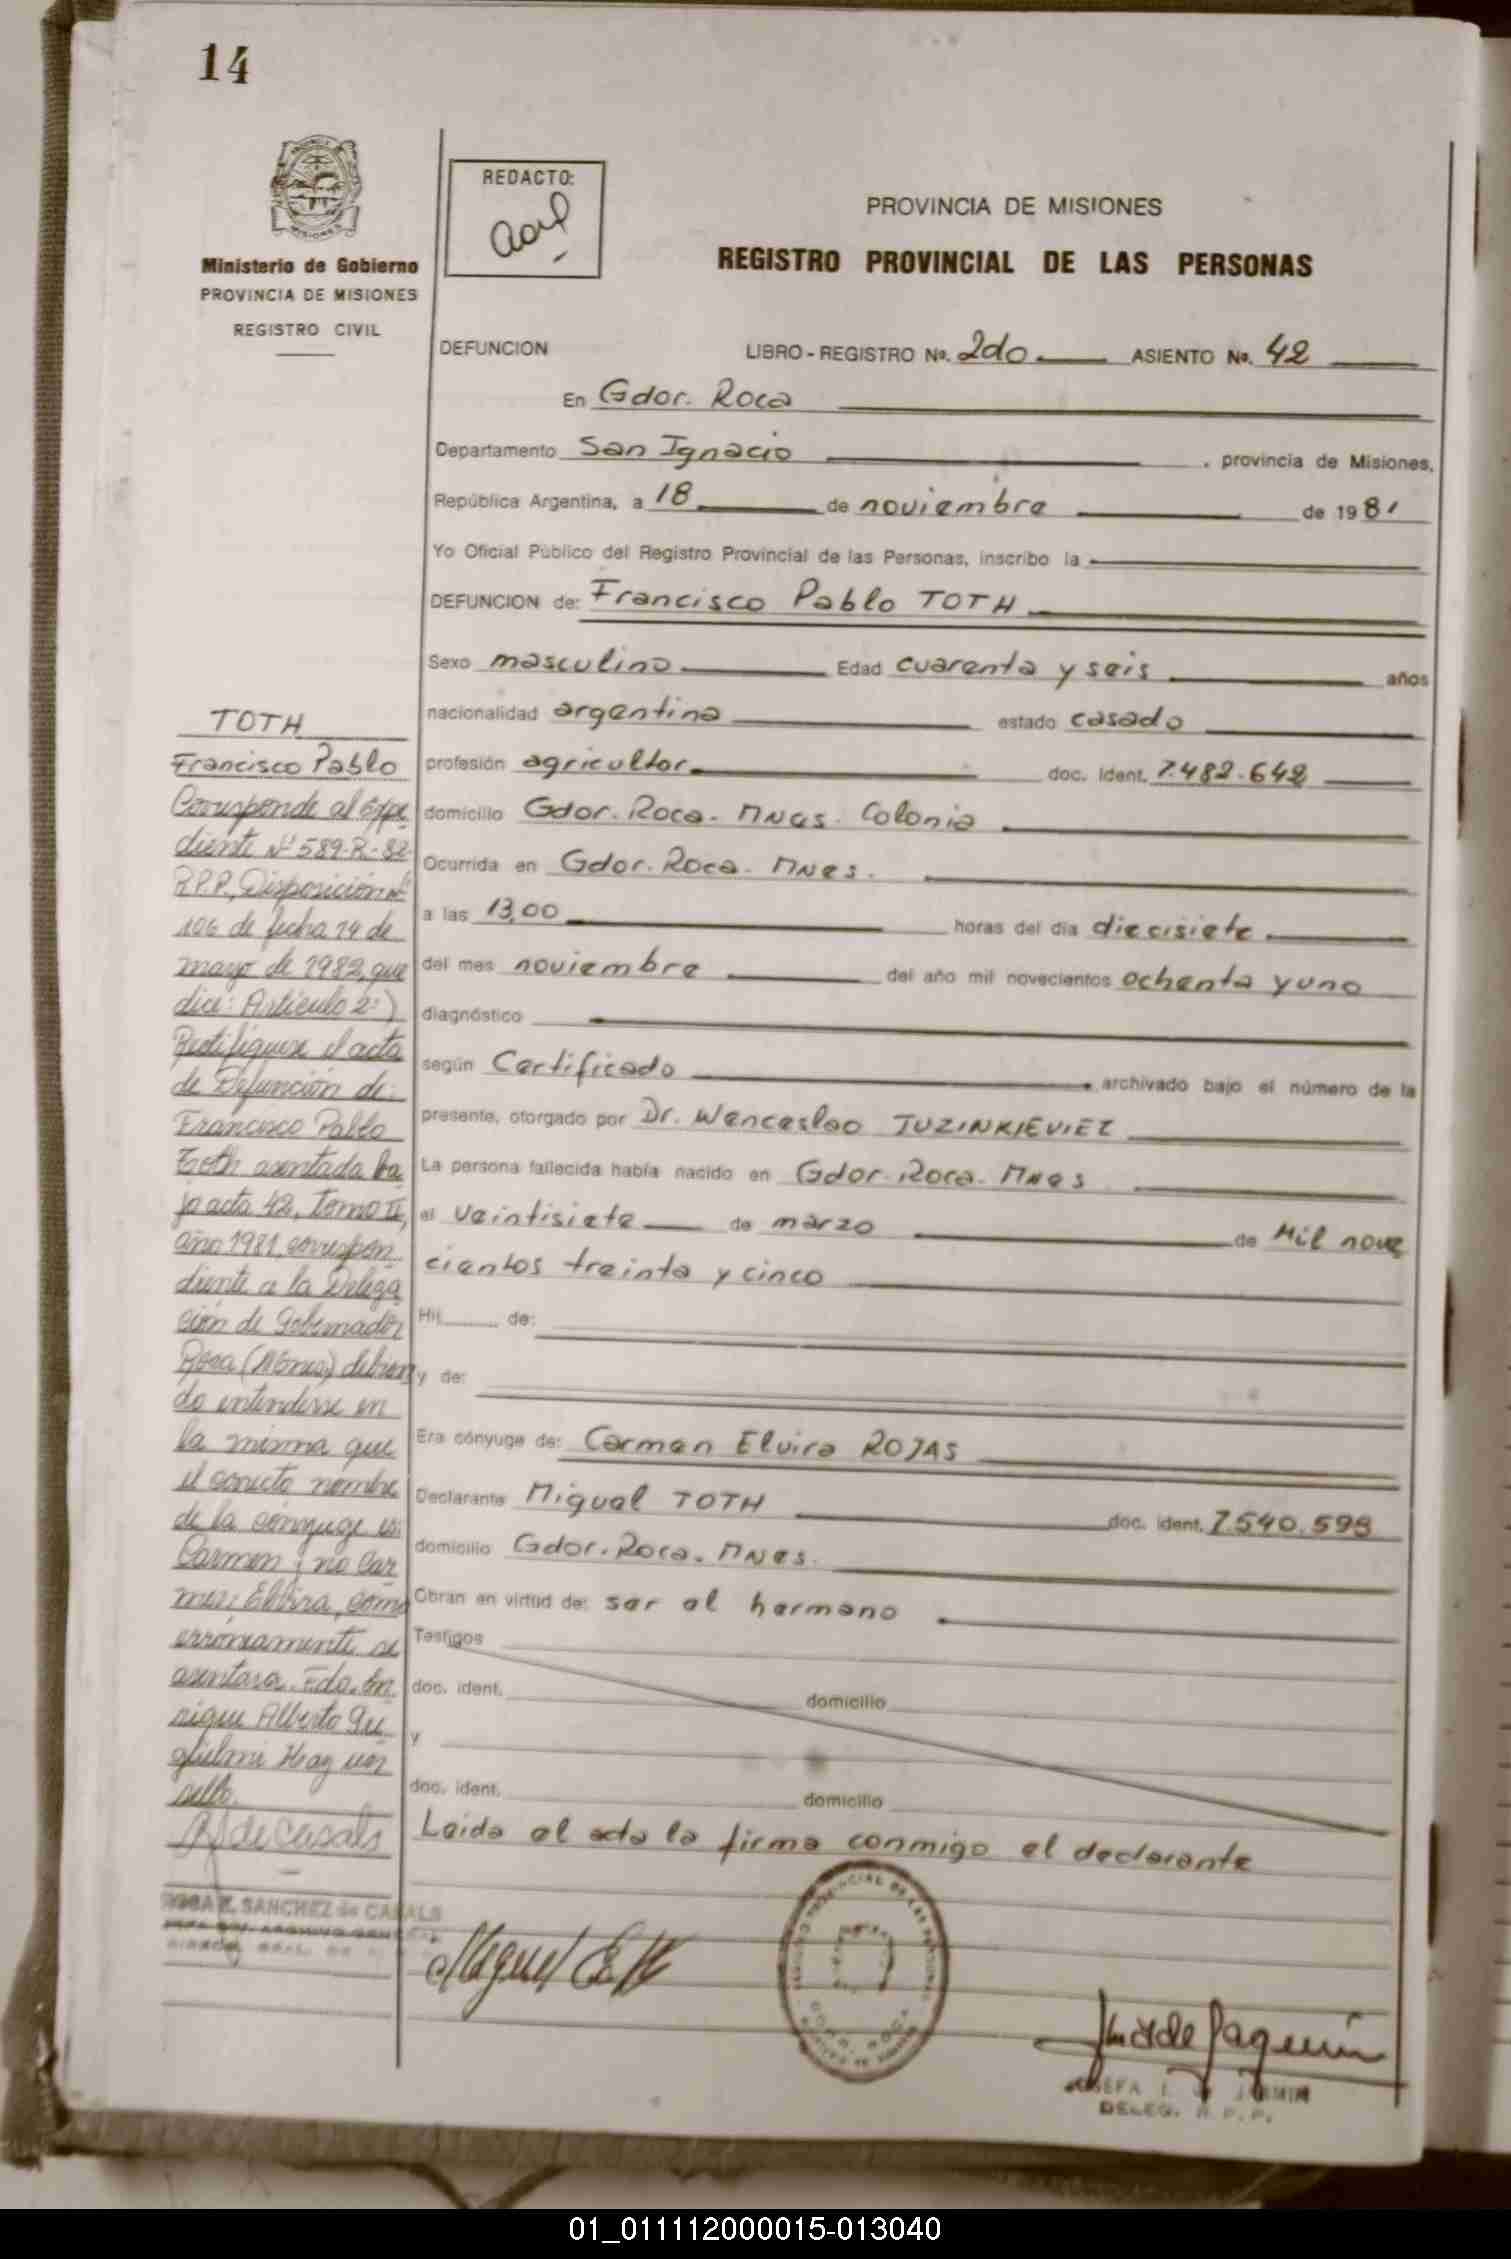 14
Ministerio de Gobierno
PROVINCIA DE MISIONES
REGISTRO CIVIL
REDACTO:
PROVINCIA DE MISIONES
REGISTRO PROVINCIAL DE LAS PERSONAS
DEFUNCION LIBRO - REGISTRO Nº. 2do. ASIENTO Nº. 42
En Gdor. Roca
Departamento San Ignacio , provincia de Misiones,
República Argentina, a 18 de noviembre de 1981
Yo Oficial Público del Registro Provincial de las Personas, inscribo la
DEFUNCION de: Francisco Pablo TOTH
Sexo masculino Edad cuarenta y seis años
nacionalidad argentina estado casado
profesión agricultor doc. ident. 7.482.642
domicilio Gdor. Roca. Mnes. Colonia
Ocurrida en Gdor. Roca. Mnes.
a las 13,00 horas del día diecisiete
del mes noviembre del año mil novecientos ochenta y uno
diagnóstico
según Certificado archivado bajo el número de la
presente, otorgado por Dr. Wenceslao JUZINKIEVIEZ
La persona fallecida había nacido en Gdor. Roca. Mnes
el veintisiete de marzo de Mil nove
cientos treinta y cinco
Hij de:
y de:
Era cónyuge de: Carmen Elvira ROJAS
Declarante Miguel TOTH doc. ident. 7.540.599
domicilio Gdor. Roca. Mnes.
Obran en virtud de: ser el hermano
Testigos
doc. ident. domicilio
y
doc. ident. domicilio
Leida el acta la firma conmigo el declarante
TOTH
Francisco Pablo
Corresponde al Expe
diente Nº 589-R-82
R.P.P., Disposición Nº
106 de fecha 14 de
mayo de 1982, que
dice: Artículo 2º)
Rectifíquese el acta
de Defunción de:
Francisco Pablo
Toth asentada ba
jo acta 42, Tomo II,
año 1981, correspon
diente a la Delega
ción de Gobernador
Roca (Mnes) debien
do entenderse en
la misma que
el correcto nombre
de la cónyuge es:
Carmen y no Car
men Elvira, como
erróneamente se
asentara. Fdo. En
rique Alberto Gu
glielmi Hay un
sello.
RS de Casals
ROSA E. SANCHEZ de CASALS
DELEG. R.P.P.
01_011112000015-013040